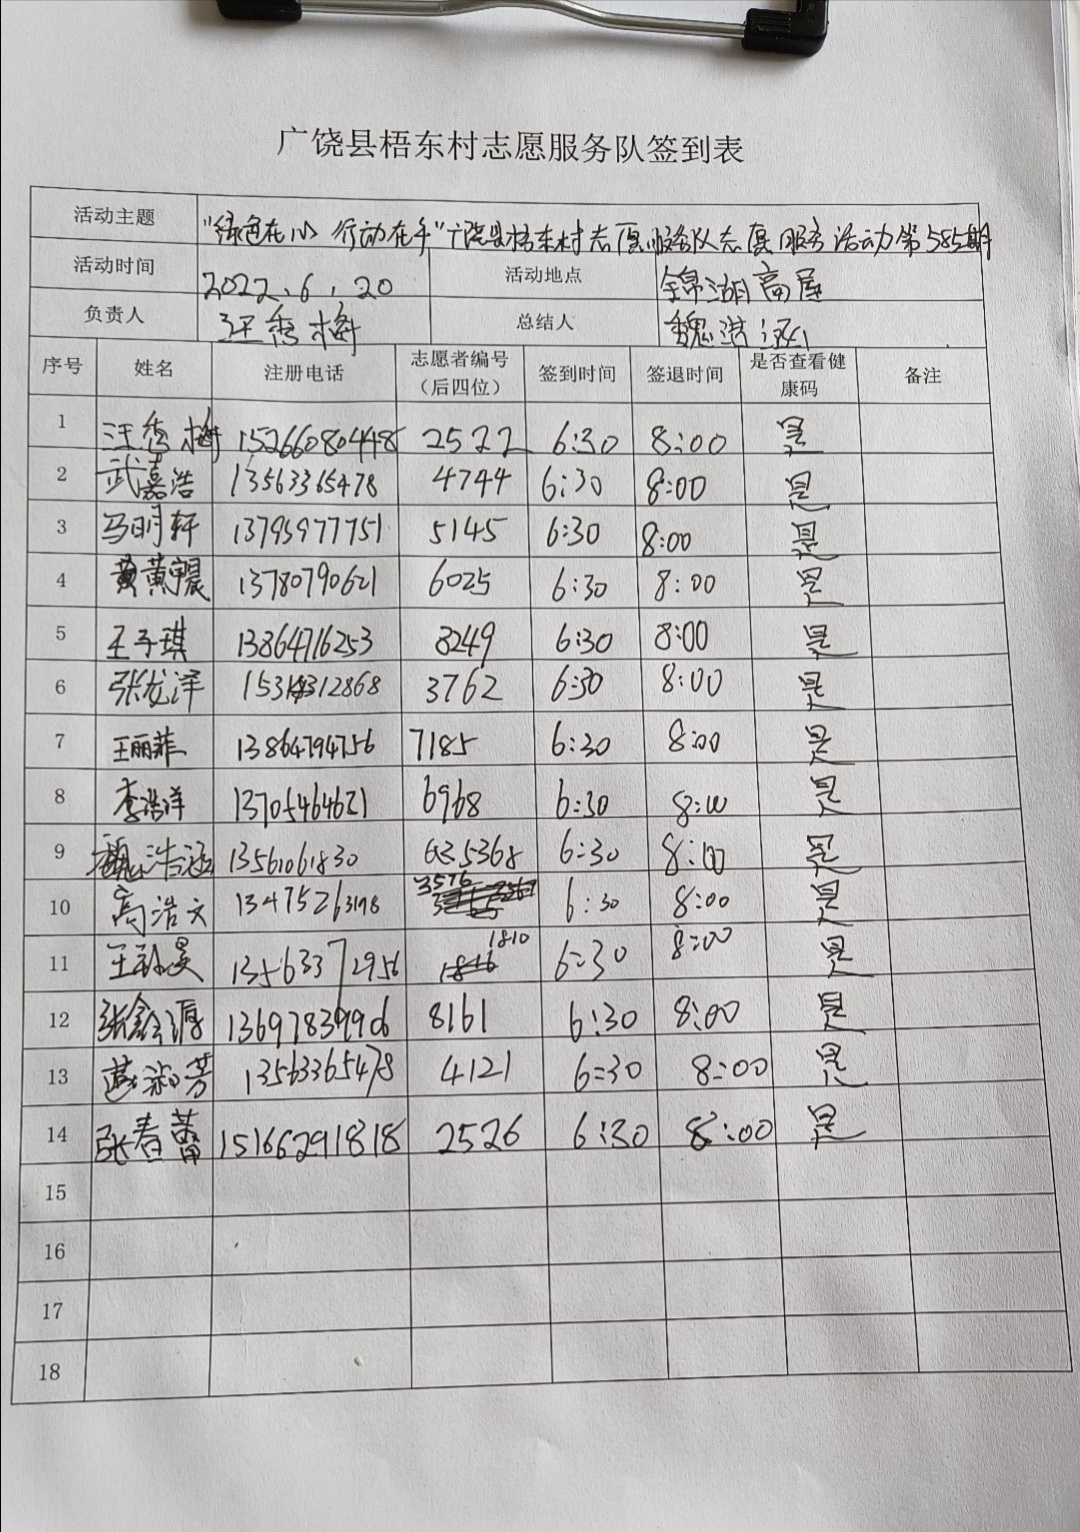 广饶县梧东村志愿服务队签到表
活动主题 "绿色在心 行动在手"广饶县梧东村志愿服务队志愿服务活动第585期
活动时间 2022.6.20 活动地点 锦湖高屋
负责人 汪秀梅 总结人 魏浩涵
序号 姓名 注册电话 志愿者编号（后四位） 签到时间 签退时间 是否查看健康码 备注
1 汪秀梅 15266080448 2522 6:30 8:00 是
2 武嘉浩 13563365478 4744 6:30 8:00 是
3 马明轩 13795977751 5145 6:30 8:00 是
4 黄宇晨 13780790621 6025 6:30 8:00 是
5 王子琪 13864716253 8249 6:30 8:00 是
6 张龙洋 3762 6:30 8:00 是
7 王丽菲 13864794756 7185 6:30 8:00 是
8 李浩洋 13705464621 6968 6:30 8:00 是
9 魏浩涵 13561061830 5368 6:30 8:00 是
10 高浩文 13475263198 3576 6:30 8:00 是
11 王 昊 13563372956 1810 6:30 8:00 是
12 张鑫源 13697839906 8161 6:30 8:00 是
13 淑芳 13563365478 4121 6:30 8:00 是
14 张春蕾 15166291818 2526 6:30 8:00 是
15
16
17
18